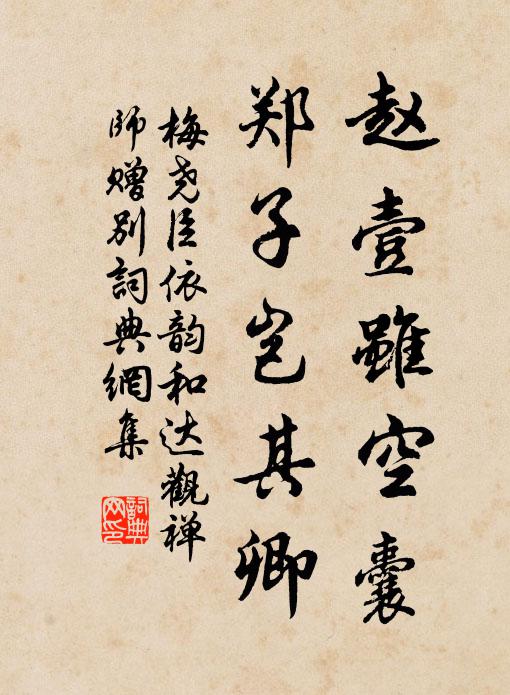 赵壹雖空囊
郑子岂其卿
梅尧臣依韵和达觀禅
师赠别詞典網集
詞典网印